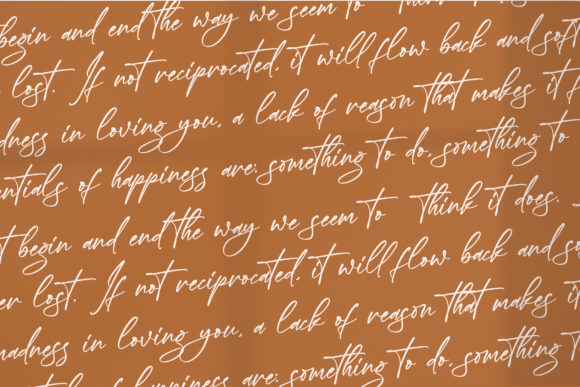 begin and end the way we seem to
lost. If not reciprocated, it will flow back and soft
adness in loving you, a lack of reason that makes it f
entials of happiness are: something to do, something to
t begin and end the way we seem to think it does.
er lost. If not reciprocated, it will flow back and so
madness in loving you, a lack of reason that makes it
of happiness are: something to do, something